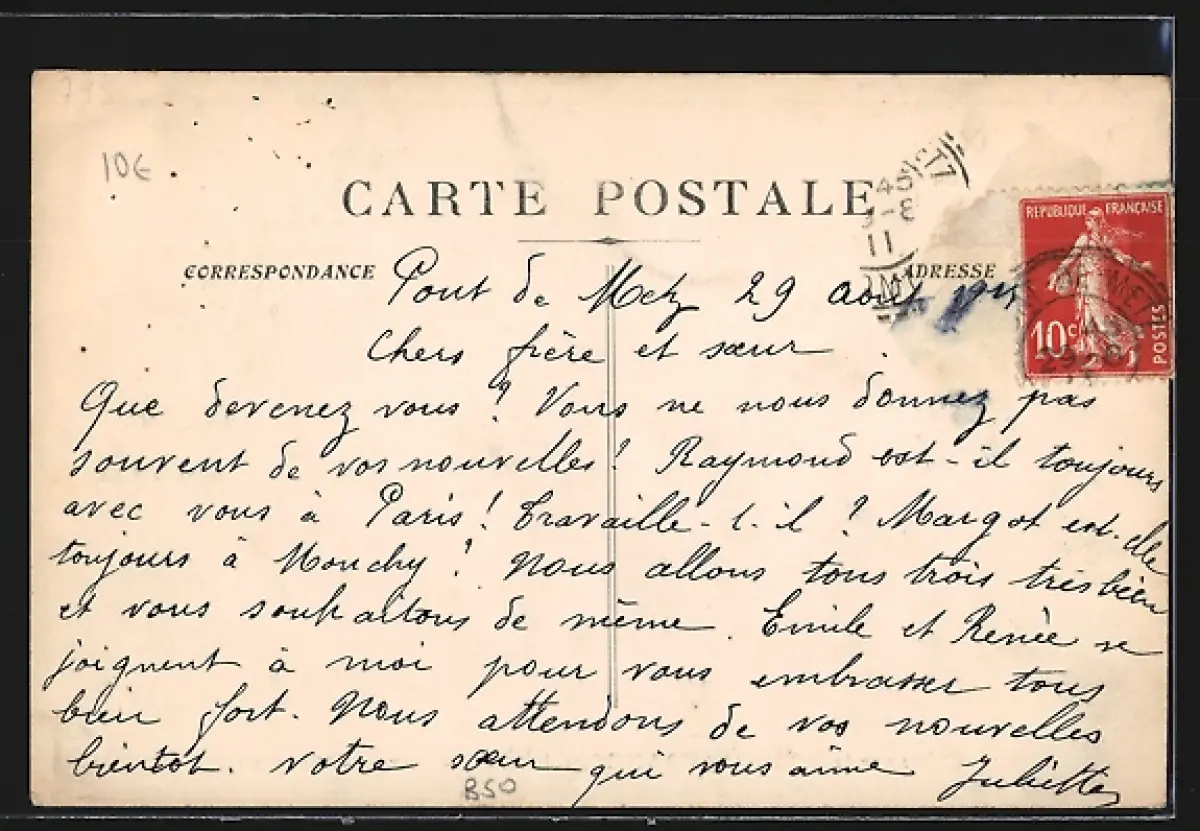 10€
CARTE POSTALE
CORRESPONDANCE
ADRESSE
REPUBLIQUE FRANÇAISE
10c
POSTES
45
11
29-8
Pont de Metz 29 août
Chers frère et sœur
Que devenez vous ? Vous ne nous donnez pas
souvent de vos nouvelles ! Raymond est-il toujours
avec vous à Paris ! Travaille-t-il ? Margot est-elle
toujours à Monchy ? Nous allons tous trois très bien
et vous souhaitons de même. Emile et Renée se
joignent à moi pour vous embrasser tous
bien fort. Nous attendons de vos nouvelles
bientot. votre sœur qui vous aime Juliette
BSO